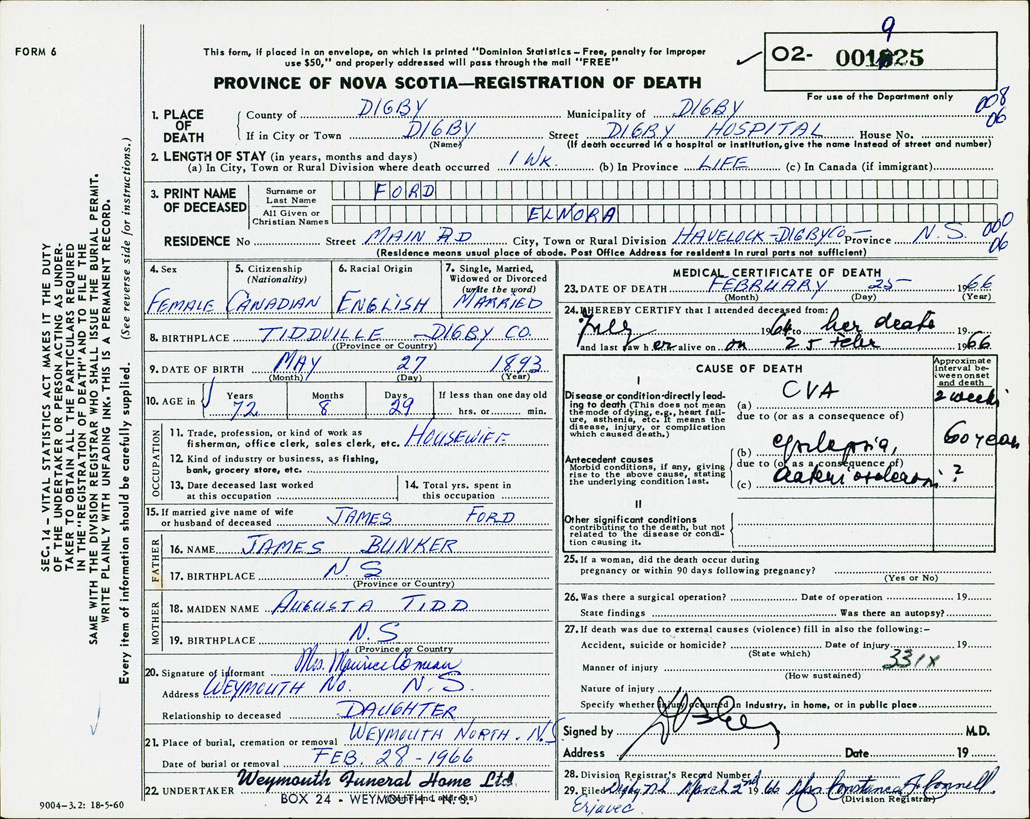 FORM 6
This form, if placed in an envelope, on which is printed "Dominion Statistics – Free, penalty for improper
use $50," and properly addressed will pass through the mail "FREE"
9
O2- 001825
For use of the Department only
PROVINCE OF NOVA SCOTIA—REGISTRATION OF DEATH
008
06
1. PLACE OF DEATH
County of DIGBY Municipality of DIGBY
If in City or Town DIGBY Street DIGBY HOSPITAL House No.
(Name) (If death occurred in a hospital or institution, give the name instead of street and number)
2. LENGTH OF STAY (in years, months and days)
(a) In City, Town or Rural Division where death occurred 1 WK. (b) In Province LIFE (c) In Canada (if immigrant)
3. PRINT NAME OF DECEASED
Surname or Last Name FORD
All Given or Christian Names ELNORA
000
06
RESIDENCE No Street MAIN RD City, Town or Rural Division HAVELOCK-DIGBY CO- Province N.S.
(Residence means usual place of abode. Post Office Address for residents in rural parts not sufficient)
4. Sex FEMALE
5. Citizenship (Nationality) CANADIAN
6. Racial Origin ENGLISH
7. Single, Married, Widowed or Divorced (write the word) MARRIED
8. BIRTHPLACE TIDDVILLE - DIGBY CO.
(Province or Country)
9. DATE OF BIRTH MAY 27 1893
(Month) (Day) (Year)
10. AGE in Years 72 Months 8 Days 29 If less than one day old hrs. or min.
OCCUPATION
11. Trade, profession, or kind of work as
fisherman, office clerk, sales clerk, etc. HOUSEWIFE
12. Kind of industry or business, as fishing,
bank, grocery store, etc.
13. Date deceased last worked
at this occupation
14. Total yrs. spent in
this occupation
15. If married give name of wife
or husband of deceased JAMES FORD
FATHER
16. NAME JAMES BUNKER
17. BIRTHPLACE N.S
(Province or Country)
MOTHER
18. MAIDEN NAME AUGUSTA TIDD
19. BIRTHPLACE N.S
(Province or Country)
20. Signature of informant Mrs. Maurice Comeau
Address WEYMOUTH NO. N.S.
Relationship to deceased DAUGHTER
21. Place of burial, cremation or removal WEYMOUTH NORTH. N.S
Date of burial or removal FEB. 28-1966
22. UNDERTAKER Weymouth Funeral Home Ltd.
BOX 24 - WEYMOUTH, N. S.
MEDICAL CERTIFICATE OF DEATH
23. DATE OF DEATH FEBRUARY 25- 1966
(Month) (Day) (Year)
24. I HEREBY CERTIFY that I attended deceased from:
July 1964 to her death 19
and last saw her alive on 25 Febr 1966
CAUSE OF DEATH
Approximate interval between onset and death
I
Disease or condition directly leading to death (This does not mean the mode of dying, e.g., heart failure, asthenia, etc. It means the disease, injury, or complication which caused death.)
(a) CVA 2 weeks
due to (or as a consequence of
Antecedent causes
Morbid conditions, if any, giving rise to the above cause, stating the underlying condition last.
(b) epilepsia, 60 years
due to (or as a consequence of)
(c) ?
II
Other significant conditions
contributing to the death, but not related to the disease or condition causing it.
25. If a woman, did the death occur during
pregnancy or within 90 days following pregnancy?
(Yes or No)
26. Was there a surgical operation? Date of operation 19
State findings Was there an autopsy?
27. If death was due to external causes (violence) fill in also the following:–
Accident, suicide or homicide? Date of injury 19
(State which)
331x
Manner of injury
(How sustained)
Nature of injury
Specify whether injury occurred in Industry, in home, or in public place
Signed by M.D.
Address Date 19
28. Division Registrar's Record Number
29. Filed Digby N.S. March 2nd 1966 Mrs Constance F. Connell
(Division Registrar)
Erjavec
9004-3.2: 18-5-60
SEC. 14 – VITAL STATISTICS ACT MAKES IT THE DUTY
OF THE UNDERTAKER OR PERSON ACTING AS UNDER-
TAKER TO OBTAIN ALL THE PARTICULARS REQUIRED
IN THE "REGISTRATION OF DEATH" AND TO FILE THE
SAME WITH THE DIVISION REGISTRAR WHO SHALL ISSUE THE BURIAL PERMIT.
WRITE PLAINLY WITH UNFADING INK. THIS IS A PERMANENT RECORD.
Every item of information should be carefully supplied. (See reverse side for instructions.)